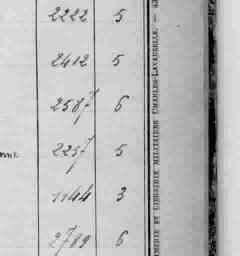 2222 5
2412 5
2587 6
2257 5
1144 3
2789 6
MERIE ET LIBRAIRIE MILITAIRES CHARLES-LAVAUZELLE. —